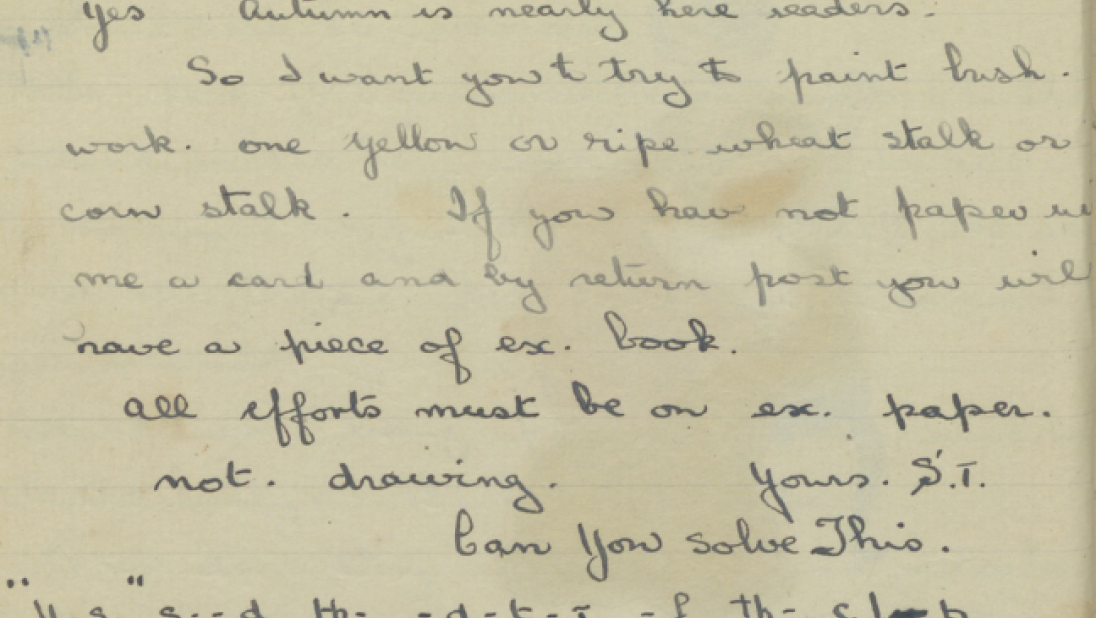 Yes Autumn is nearly here readers.
So I want you to try to paint bush.
work. one yellow or ripe wheat stalk or
corn stalk. If you hav not paper
me a card and by return post you will
have a piece of ex. book.
all efforts must be on ex. paper.
not. drawing. Yours. S.T.
Can You solve This.